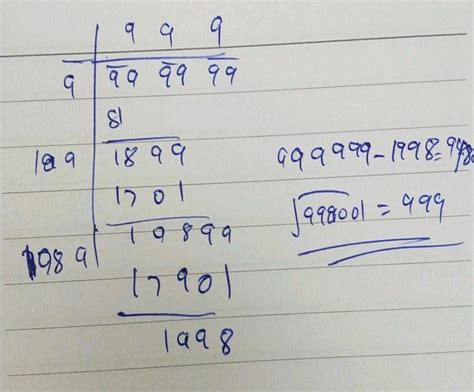 9 9 9
9 99 99 99
81
189 1899
1701
1989 19899
17901
1998
999999-1998=998
√998001 = 999